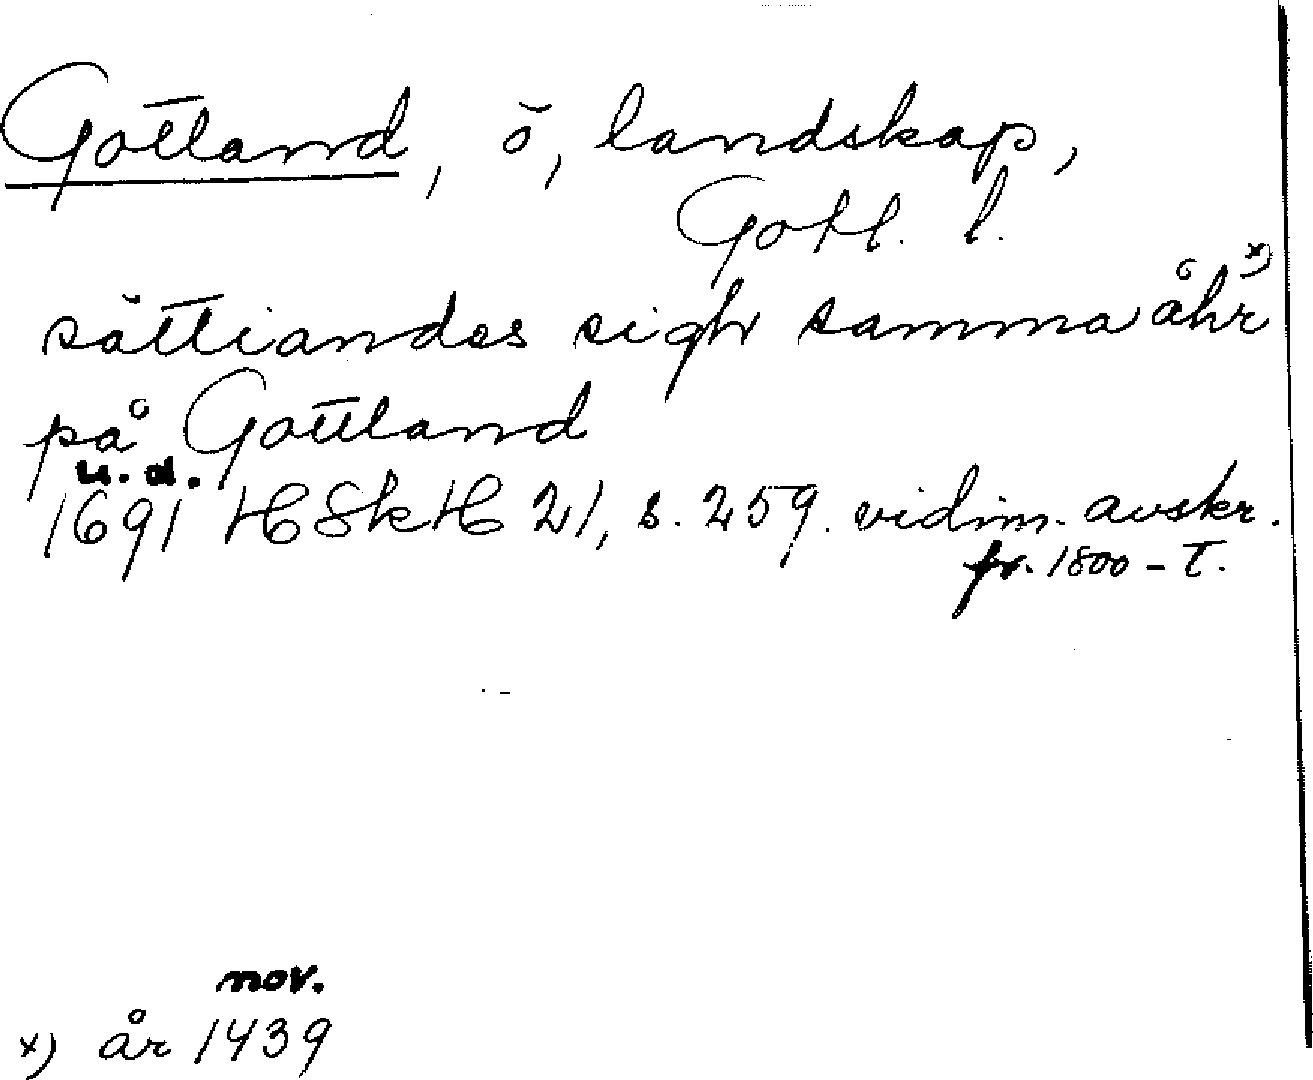 Gotland, ö, landskap,
Gotl. l.
sättiandes sigh samma åhr x)
på Gottland
u. d.
1691 HSkH 21, s. 259. vidim. avskr.
fr. 1800-t.
nov.
x) år 1439